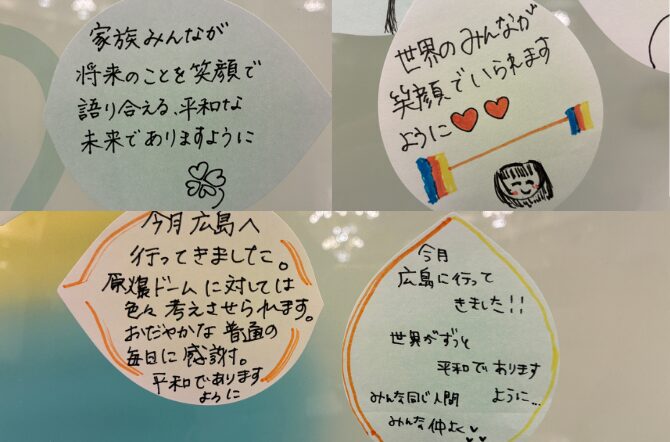 家族みんなが
将来のことを笑顔で
語り合える、平和な
未来でありますように
世界のみんなが
笑顔でいられます
ように
今月広島へ
行ってきました。
原爆ドームに対しては
色々考えさせられます。
おだやかな普通の
毎日に感謝。
平和であります
ように
今月
広島に行って
きました!!
世界がずっと
平和であります
ように...
みんな同じ人間
みんな仲よく